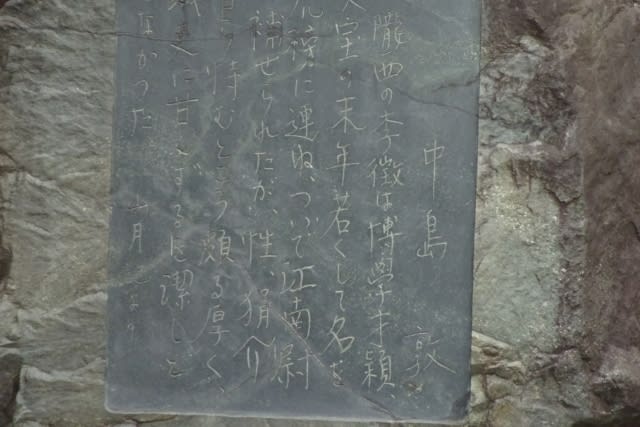 中島 敦
隴西の李徴は博學才穎、
寶の末年若くして名を
虎榜に連ね、ついで江南尉
補せられたが、性、狷介
自ら恃むところ頗る厚く、
賤吏に甘んずるを潔しと
なかつた
月